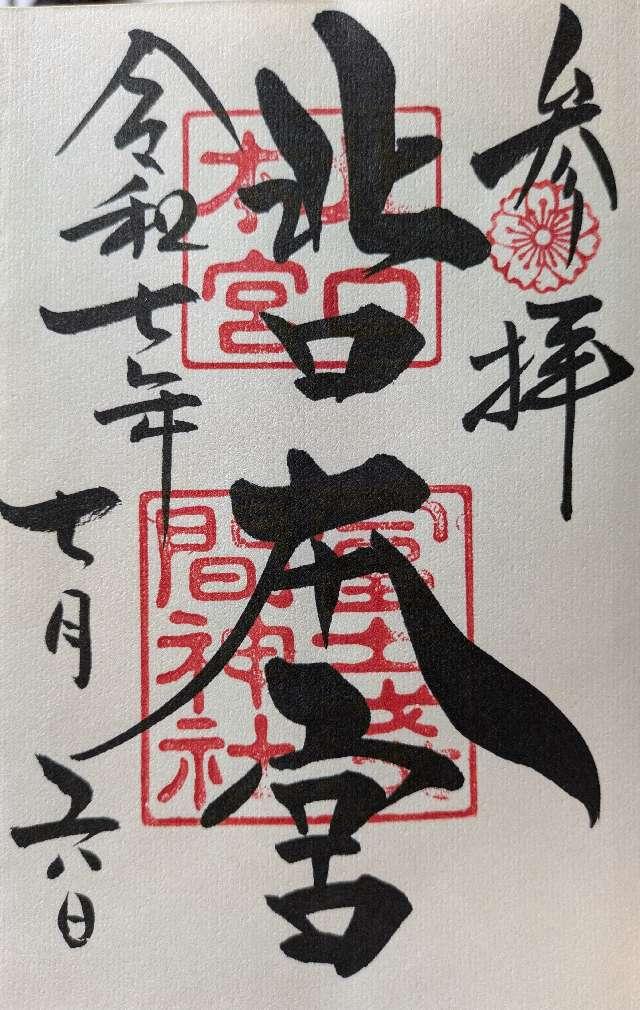 参拝
北口本宮
令和七年
七月六日
北口
本宮
冨士浅
間神社